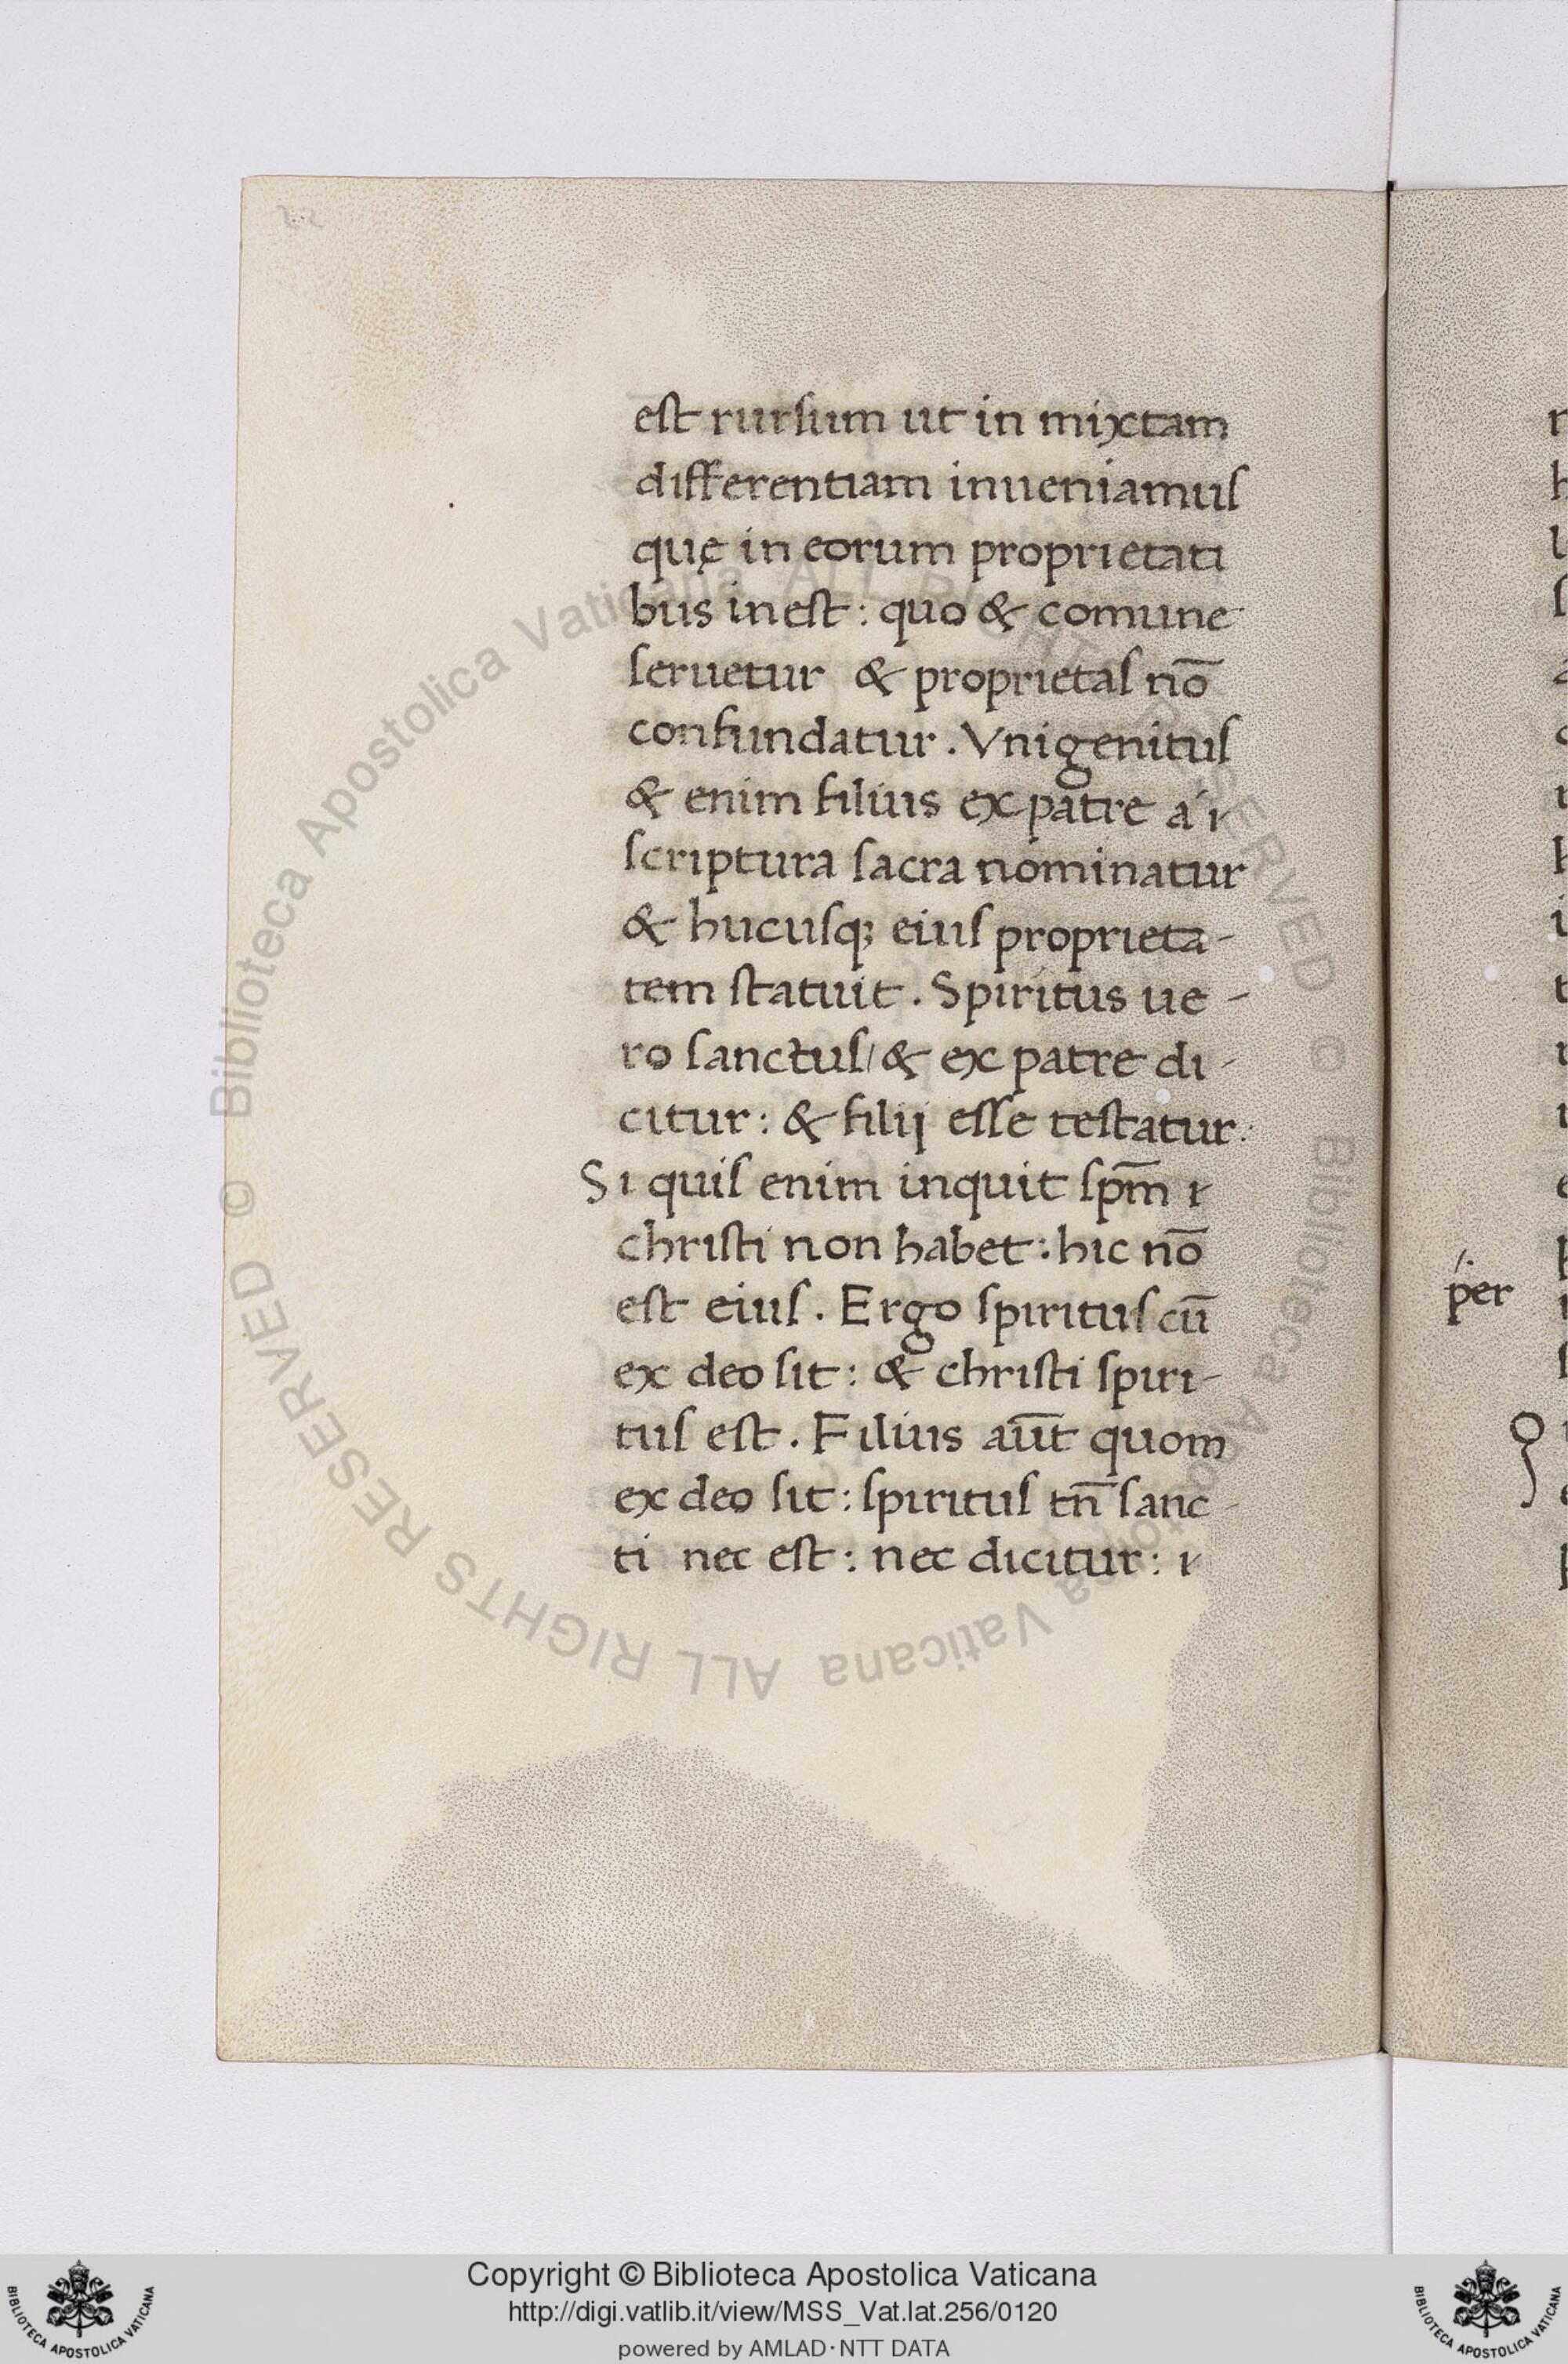 est rursum ut in mixtam
differentiam inueniamus
quę in eorum proprietati
bus inest: quo & comune
seruetur & proprietas nō
confundatur. Vnigenitus
& enim filius ex patre a
scriptura sacra nominatur
& hucusqꝫ eius proprieta-
tem statuit. Spiritus ue-
ro sanctus/ & ex patre di-
citur: & filij esse testatur:
Si quis enim inquit sp̄m
christi non habet: hic nō
est eius. Ergo spiritus cū
ex deo sit: & christi spiri-
tus est. Filius aūt quom
ex deo sit: spiritus tn̄ sanc-
ti nec est: nec dicitur:
per
BIBLIOTECA APOSTOLICA VATICANA
Copyright © Biblioteca Apostolica Vaticana
http://digi.vatlib.it/view/MSS_Vat.lat.256/0120
powered by AMLAD·NTT DATA
BIBLIOTECA APOSTOLICA VATICANA
© Biblioteca Apostolica Vaticana ALL RIGHTS RESERVED © Biblioteca Apostolica Vaticana ALL RIGHTS RESERVED